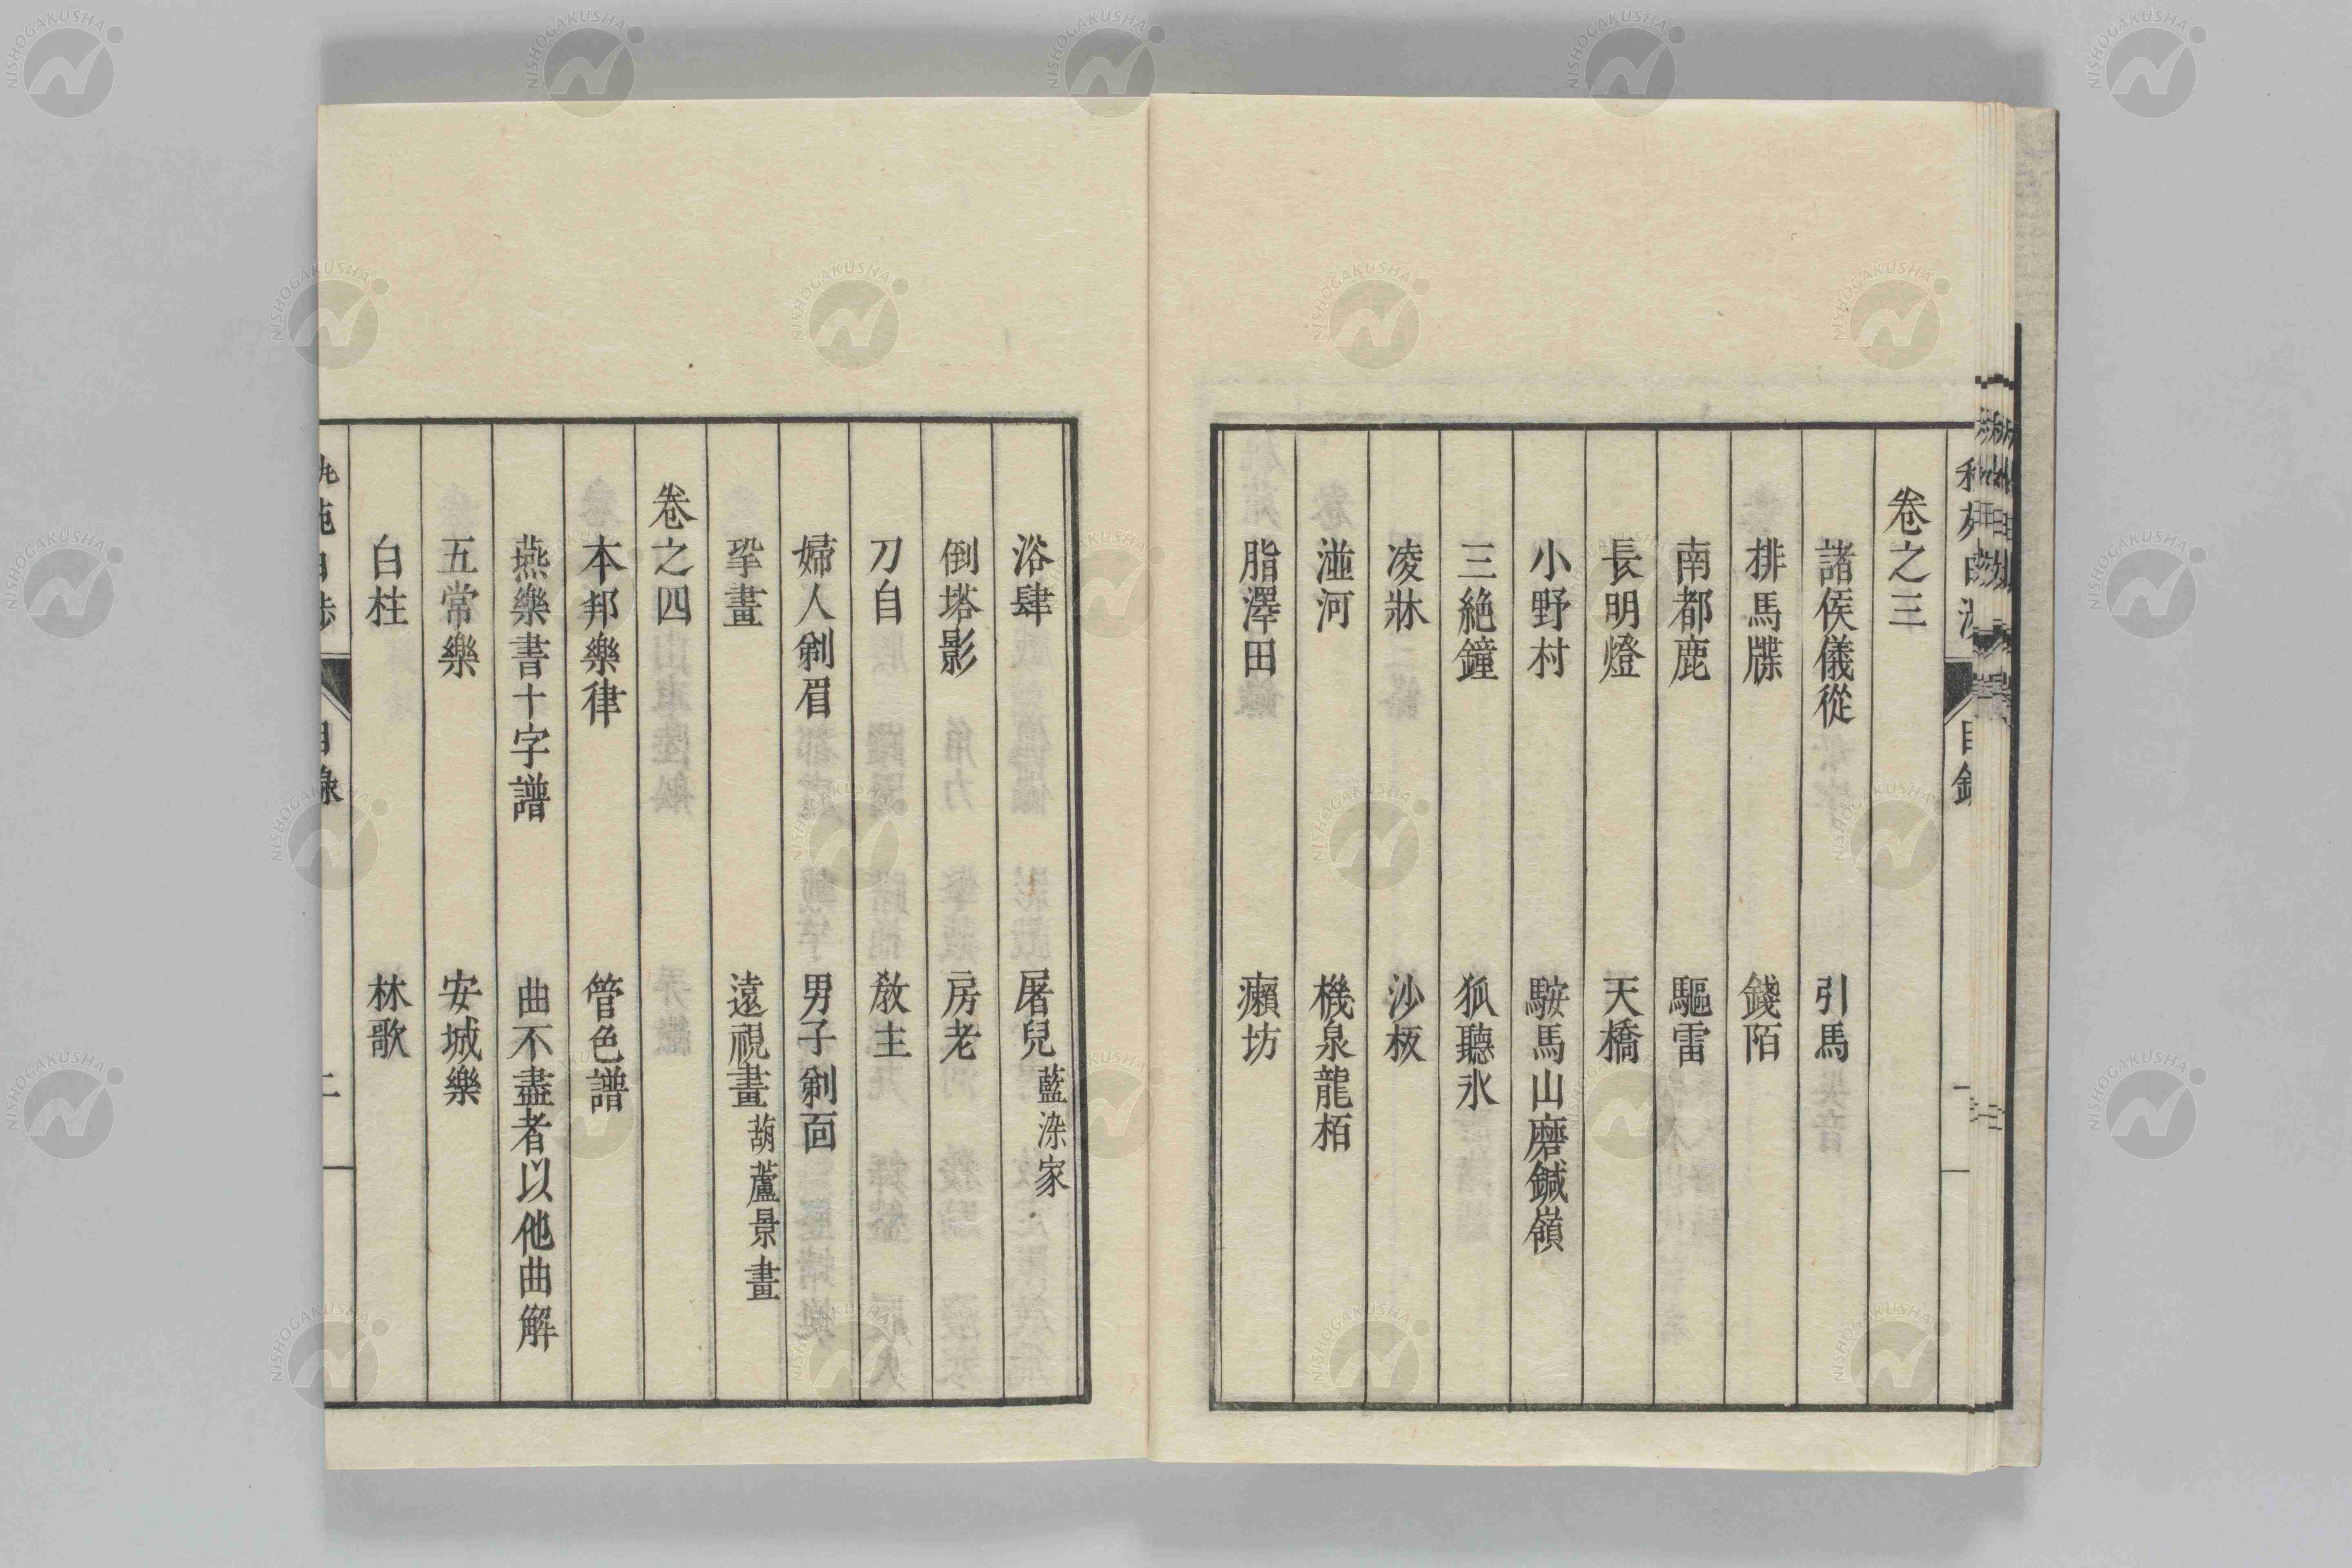 卷之三
諸侯儀從　引馬
排馬牒　錢陌
南都鹿　驅雷
長明燈　天橋
小野村　駿馬山磨鍼嶺
三絶鐘　狐聽氷
凌牀　沙板
湴河　機泉龍栢
脂澤田　癩坊
目錄
浴肆　屠兒藍染家
倒塔影　房老
刀自　敎主
婦人剃眉　男子剃面
鞏畫　遠視畫葫蘆景畫
卷之四
本邦樂律　管色譜
燕樂書十字譜　曲不盡者以他曲解
五常樂　安城樂
白柱　林歌
目錄
NISHOGAKUSHA